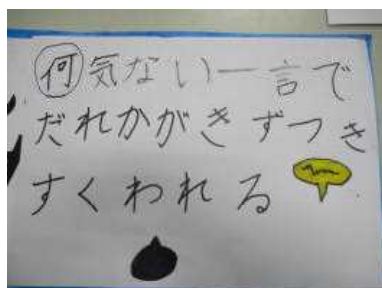 何気ない一言で
だれかがきずつき
すくわれる